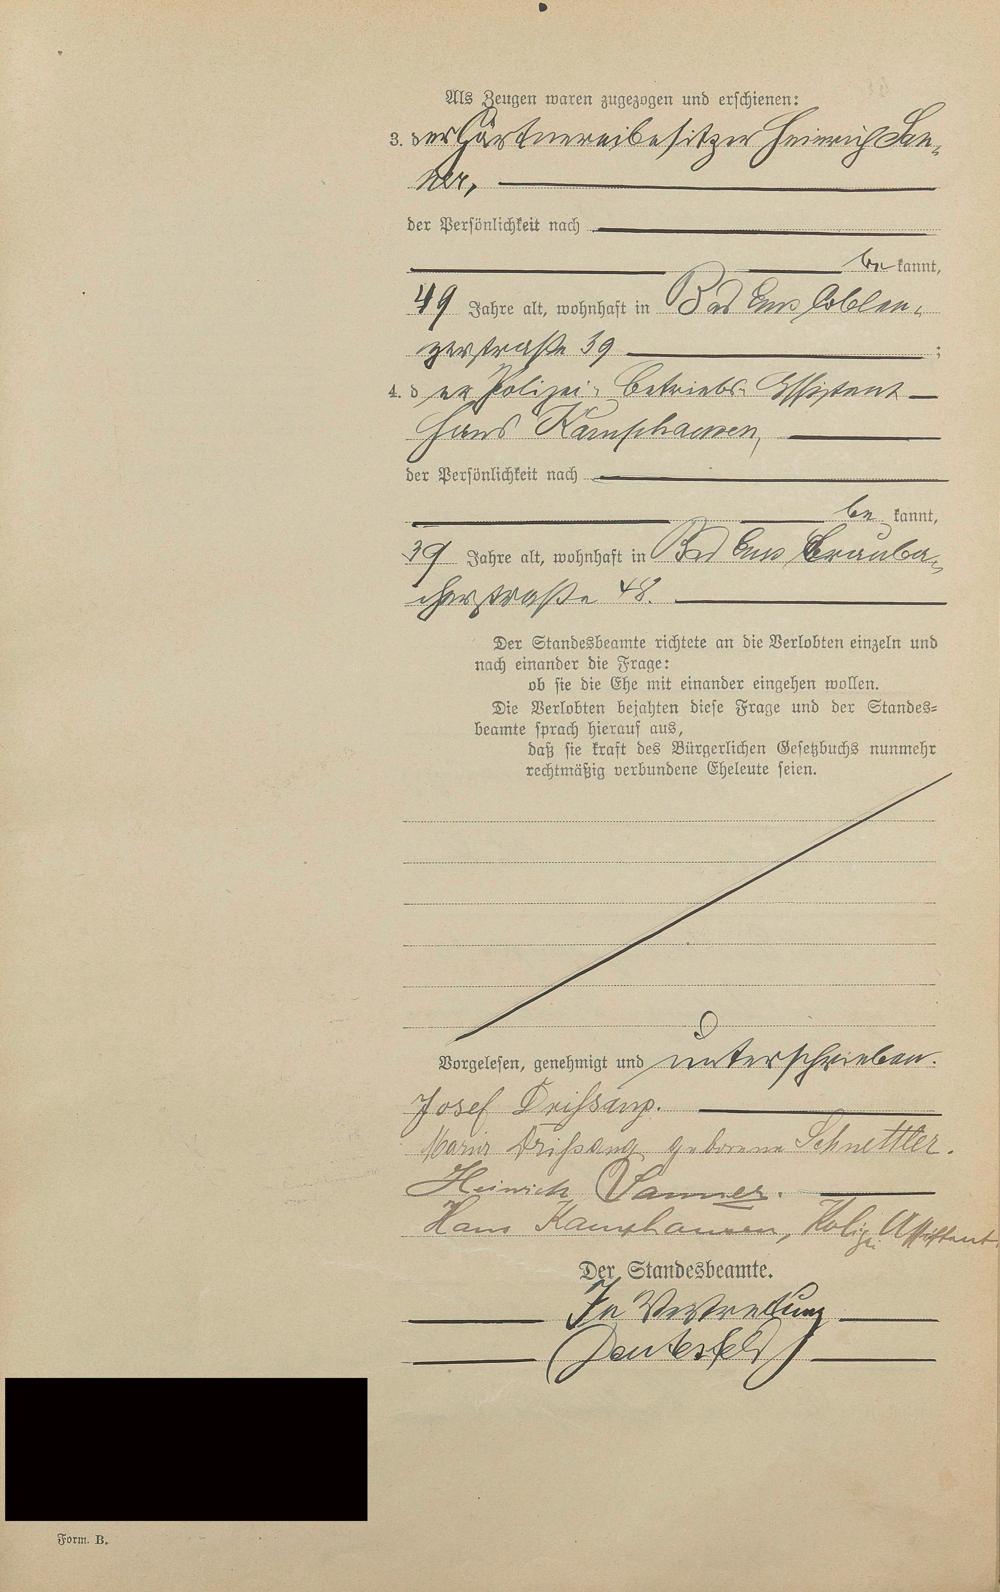 Als Zeugen waren zugezogen und erschienen:
3. der Gärtnereibesitzer Heinrich San-
ner,
der Persönlichkeit nach
be kannt,
49 Jahre alt, wohnhaft in Bad Ems Coblen-
zerstraße 39 ;
4. d er Polizei-Betriebs-Assistent
Hans Kamphausen,
der Persönlichkeit nach
be kannt,
39 Jahre alt, wohnhaft in Bad Ems Brauba-
cherstraße 48.
Der Standesbeamte richtete an die Verlobten einzeln und
nach einander die Frage:
ob sie die Ehe mit einander eingehen wollen.
Die Verlobten bejahten diese Frage und der Standes-
beamte sprach hierauf aus,
daß sie kraft des Bürgerlichen Gesetzbuchs nunmehr
rechtmäßig verbundene Eheleute seien.
Vorgelesen, genehmigt und unterschrieben.
Josef
Maria geborene Schnettler.
Heinrich Sanner.
Hans Kamphausen, Polizei Assistent
Der Standesbeamte.
In Vertretung
Form. B.